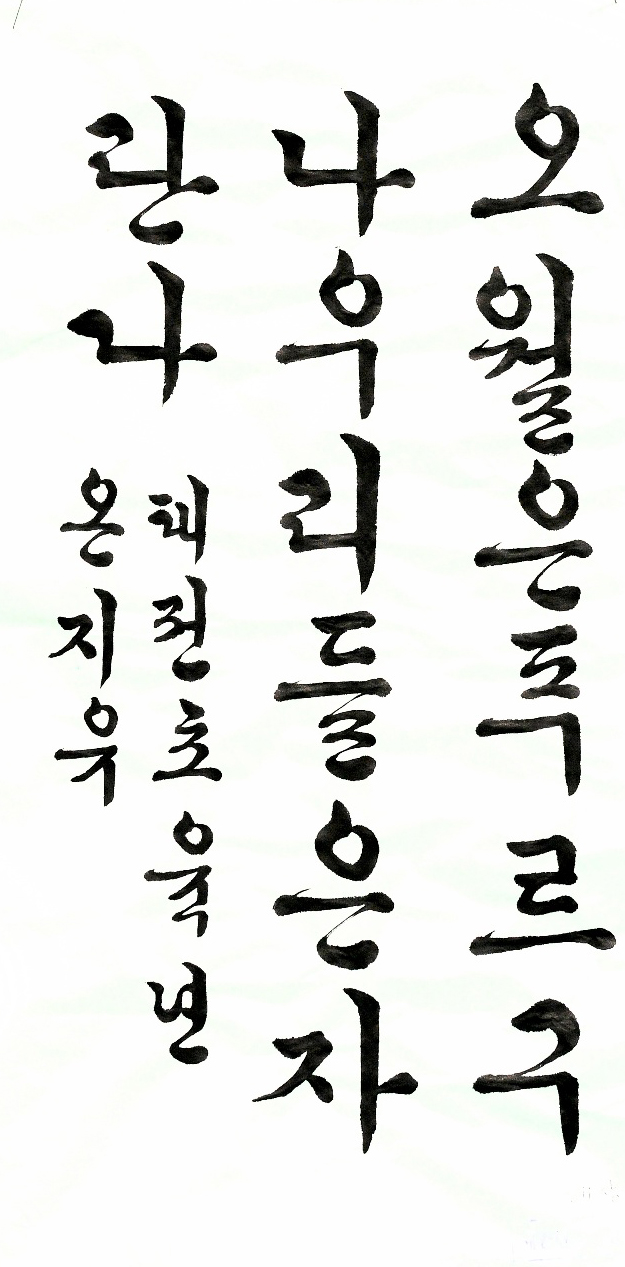 오월은푸르구
나우리들은자
란나
태전초육년
온지유